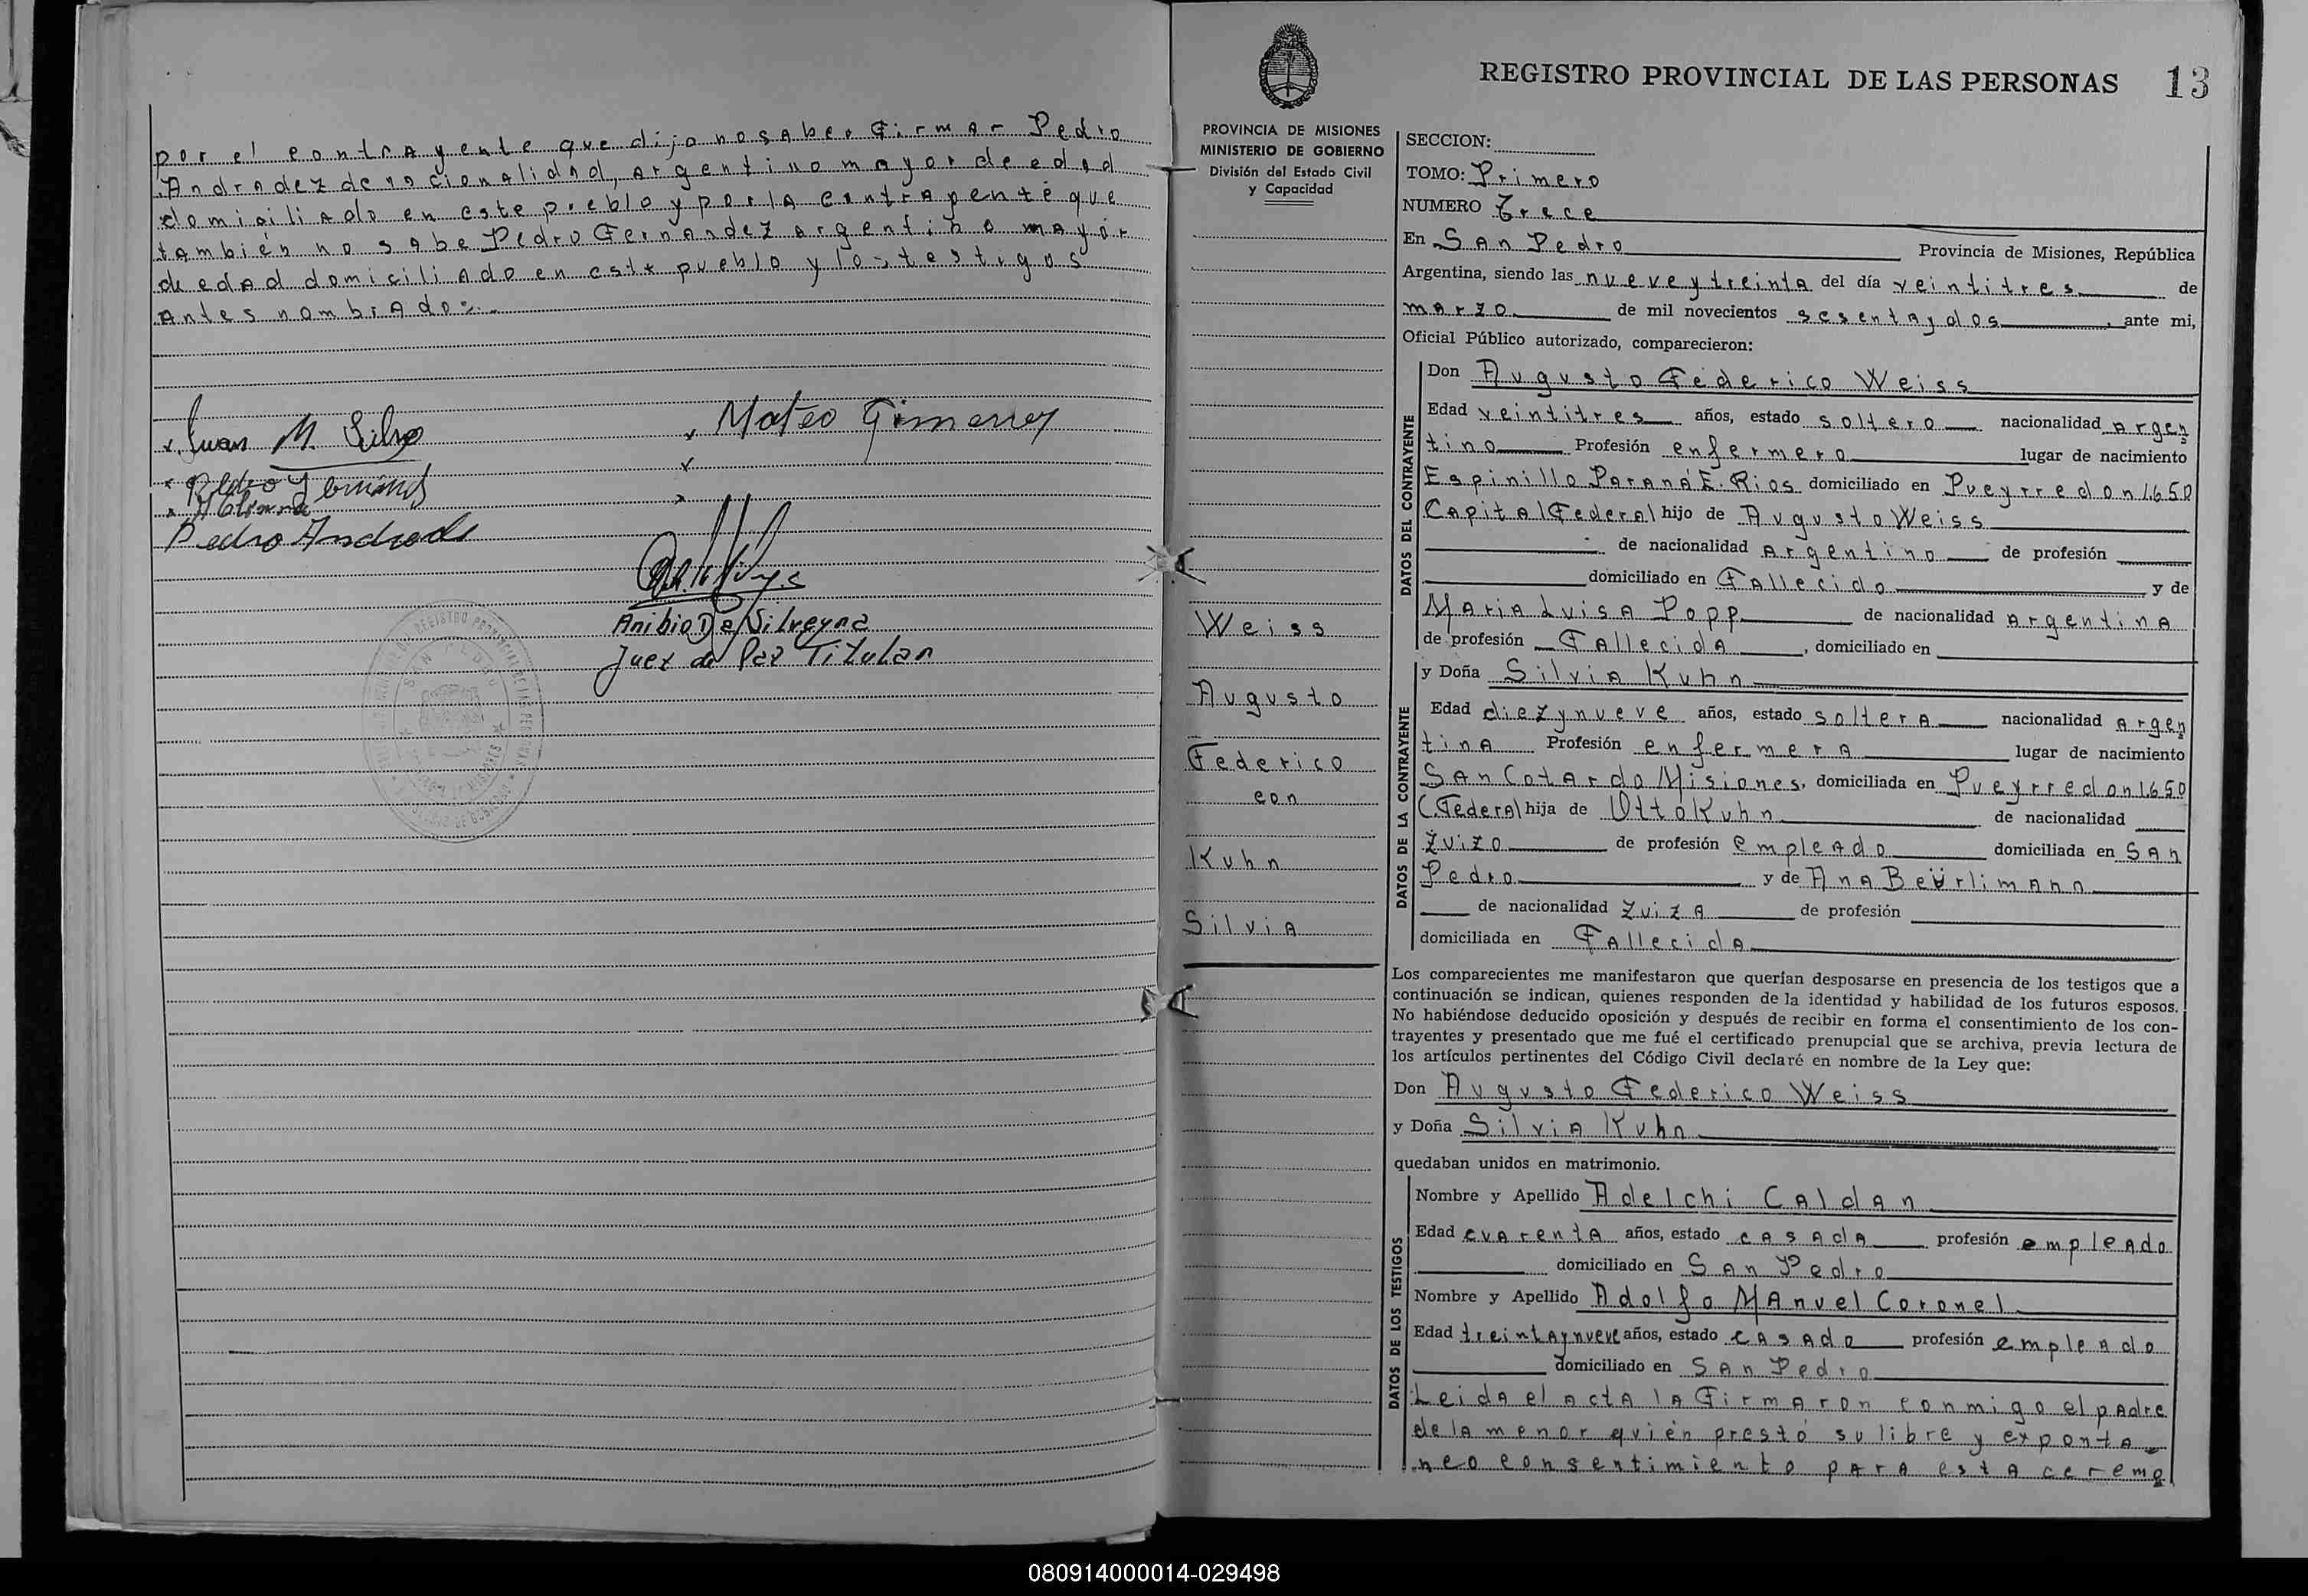 por el contrayente que dijo no saber Firmar Pedro
Andradez de nacionalidad, argentino mayor de edad
domiciliado en este pueblo y por la contrayente que
también no sabe Pedro Fernandez argentino mayor
de edad domiciliado en este pueblo y los testigos
antes nombrados.
Juan M. Silva
Mateo Gimenez
Pedro Fernández
Pedro Andrade
Anibio De Silveyra
Juez de Paz Titular
SAN PEDRO
REGISTRO PROVINCIAL DE LAS PERSONAS 13
PROVINCIA DE MISIONES
MINISTERIO DE GOBIERNO
División del Estado Civil
y Capacidad
SECCION:
TOMO: Primero
NUMERO Trece
En San Pedro Provincia de Misiones, República
Argentina, siendo las nueve y treinta del día veintitres de
marzo de mil novecientos sesenta y dos, ante mi,
Oficial Público autorizado, comparecieron:
DATOS DEL CONTRAYENTE
Don Augusto Federico Weiss
Edad veintitres años, estado soltero nacionalidad argen
tino Profesión enfermero lugar de nacimiento
Espinillo Paraná E. Rios domiciliado en Pueyrredon 1650
Capital Federal hijo de Augusto Weiss
de nacionalidad argentino de profesión
domiciliado en Fallecido y de
Maria Luisa Popp de nacionalidad argentina
de profesión Fallecida, domiciliado en
DATOS DE LA CONTRAYENTE
y Doña Silvia Kuhn
Edad diezynueve años, estado soltera nacionalidad argen
tina Profesión enfermera lugar de nacimiento
San Cotardo Misiones, domiciliada en Pueyrredon 1650
C. Federal hija de Otto Kuhn de nacionalidad
Zuizo de profesión empleado domiciliada en San
Pedro y de Ana Beürlimann
de nacionalidad Zuiza de profesión
domiciliada en Fallecida
Weiss
Augusto
Federico
con
Kuhn
Silvia
Los comparecientes me manifestaron que querían desposarse en presencia de los testigos que a
continuación se indican, quienes responden de la identidad y habilidad de los futuros esposos.
No habiéndose deducido oposición y después de recibir en forma el consentimiento de los con-
trayentes y presentado que me fué el certificado prenupcial que se archiva, previa lectura de
los artículos pertinentes del Código Civil declaré en nombre de la Ley que:
Don Augusto Federico Weiss
y Doña Silvia Kuhn
quedaban unidos en matrimonio.
DATOS DE LOS TESTIGOS
Nombre y Apellido Adelchi Caldan
Edad cuarenta años, estado casada profesión empleado
domiciliado en San Pedro
Nombre y Apellido Adolfo Manuel Coronel
Edad treintaynueve años, estado casado profesión empleado
domiciliado en San Pedro
Leida el acta la Firmaron conmigo el padre
de la menor quién prestó su libre y exponta-
neo consentimiento para esta ceremo
080914000014-029498